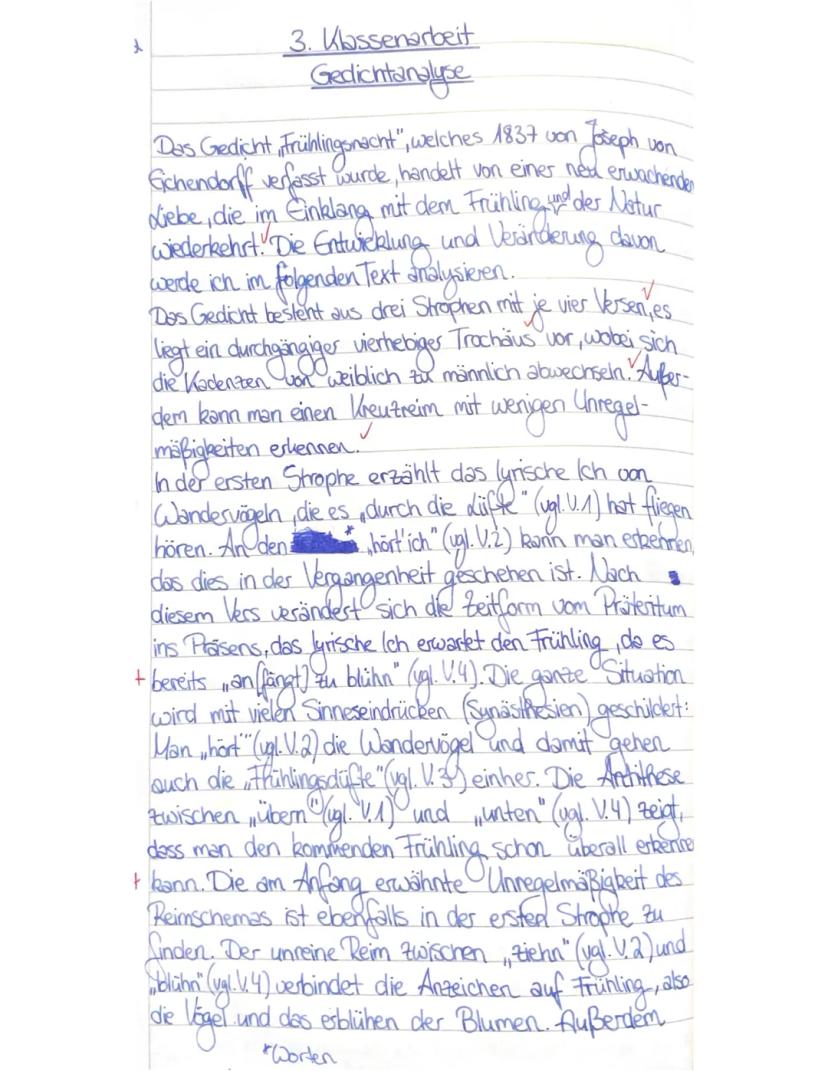 3. Klassenarbeit
Gedichtanalyse
Das Gedicht „Frühlingsnacht", welches 1837 von Joseph von
Eichendorff verfasst wurde, handelt von einer neu erwachenden
Liebe, die im Einklang mit dem Frühling und der Natur
wiederkehrt. Die Entwicklung und Veränderung davon
werde ich im folgenden Text analysieren.
Das Gedicht besteht aus drei Strophen mit je vier Versen, es
liegt ein durchgängiger vierhebiger Trochäus vor, wobei sich
die Kadenzen von weiblich zu männlich abwechseln. Außer-
dem kann man einen Kreuzreim mit wenigen Unregel-
mäßigkeiten erkennen.
In der ersten Strophe erzählt das lyrische Ich von
Wandervögeln, die es „durch die Lüfte" (vgl. V.1) hat fliegen
hören. An den * „hört' ich" (vgl. V.2) kann man erkennen,
das dies in der Vergangenheit geschehen ist. Nach
diesem Vers verändert sich die Zeitform vom Präteritum
ins Präsens, das lyrische Ich erwartet den Frühling, da es
+ bereits „an[fängt] zu blühn" (vgl. V.4). Die ganze Situation
wird mit vielen Sinneseindrücken (Synästhesien) geschildert:
Man „hört'" (vgl. V.2) die Wandervögel und damit gehen
auch die „Frühlingsdüfte" (vgl. V.3) einher. Die Antithese
zwischen „übern" (vgl. V.1) und „unten" (vgl. V.4) zeigt,
dass man den kommenden Frühling schon überall erkenne
+ kann. Die am Anfang erwähnte Unregelmäßigkeit des
Reimschemas ist ebenfalls in der ersten Strophe zu
finden. Der unreine Reim zwischen „ziehn" (vgl. V.2) und
„blühn" (vgl. V.4) verbindet die Anzeichen auf Frühling, also
die Vögel und das erblühen der Blumen. Außerdem
*Worten